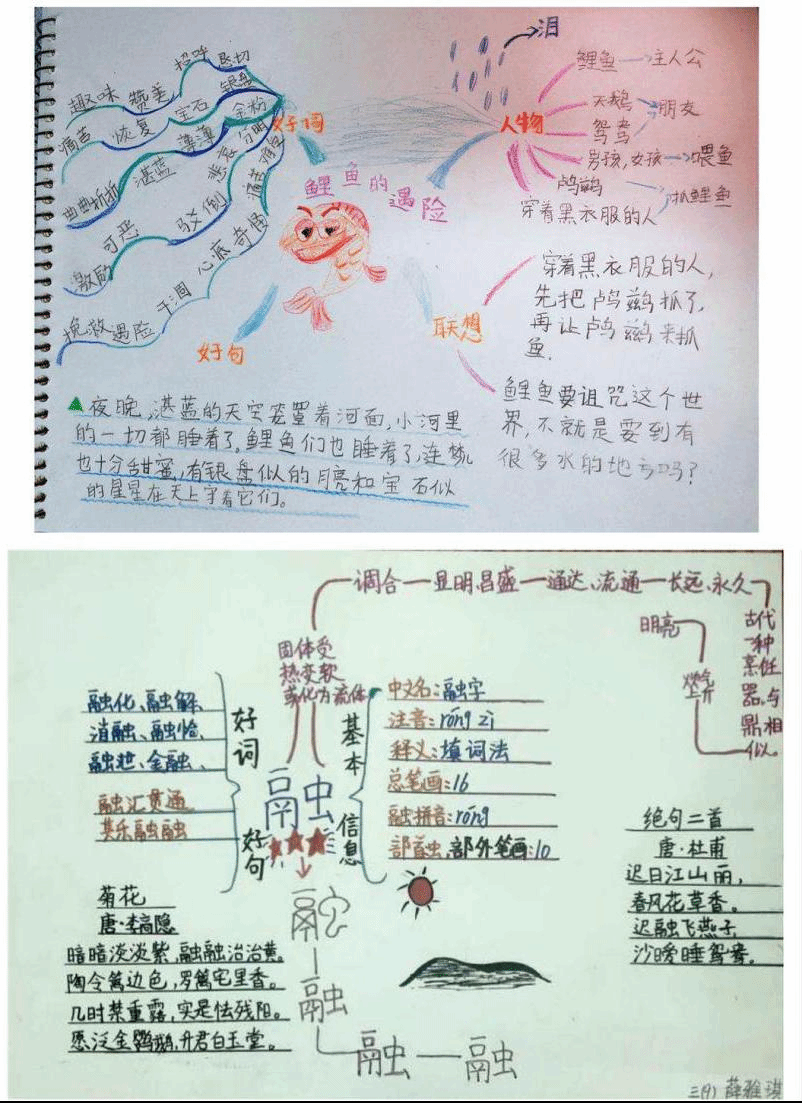 鲤鱼的遇险
好词
招呼 恳切
趣味 赞美 银盘
痛苦 恢复 宝石 金粉
薄薄 分明
曲曲折折 湛蓝 悲哀
激励 可恶 驳倒 痛苦
挽救 遇险 干涸 心底 奇怪
人物
泪
鲤鱼 主人公
天鹅 朋友
鸳鸯
男孩,女孩 喂鱼
鸬鹚
穿着黑衣服的人 抓鲤鱼
联想
穿着黑衣服的人,
先把鸬鹚抓了,
再让鸬鹚来抓
鱼.
鲤鱼要诅咒这个世
界,不就是要到有
很多水的地方吗?
好句
夜晚,湛蓝的天空笼罩着河面,小河里
的一切都睡着了。鲤鱼们也睡着了,连梦
也十分甜蜜,有银盘似的月亮和宝石似
的星星在天上守着它们。
调合一显明昌盛一通达、流通一长远、永久
古代
一种
烹饪
器,与
鼎相
似。
明亮
炊气
上升
固体受
热变软
或化为流体
好词
融化、融解、
消融、融恰、
融尬、金融、
融汇贯通
其乐融融
好句
基本信息
中文名:融字
注音:róng zì
释义:填词法
总笔画:16
融拼音:róng
部首虫,部外笔画:10
融
融
融
融一融
菊花
唐·李商隐
暗暗淡淡紫,融融冶冶黄。
陶令篱边色,罗篱宅里香。
几时禁重露,实是怯残阳。
愿泛金鹦鹉,升君白玉堂。
绝句二首
唐·杜甫
迟日江山丽,
春风花草香。
迟融飞燕子
沙暖睡鸳鸯。
三(9) 薛雅琪